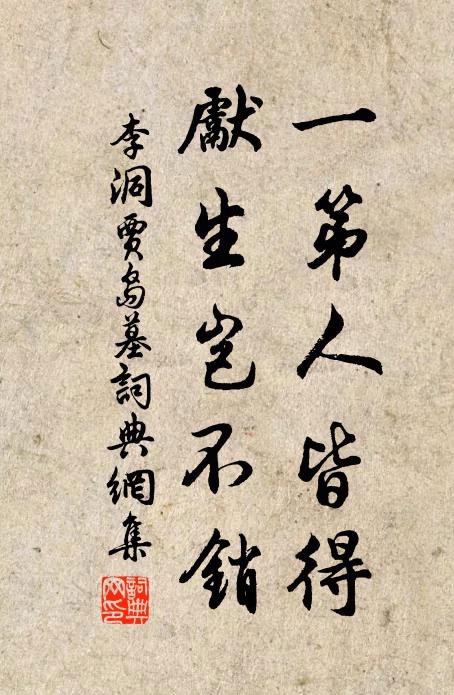 一第人皆得
獻生豈不銷
李洞賈島墓詞典網集
詞典网印